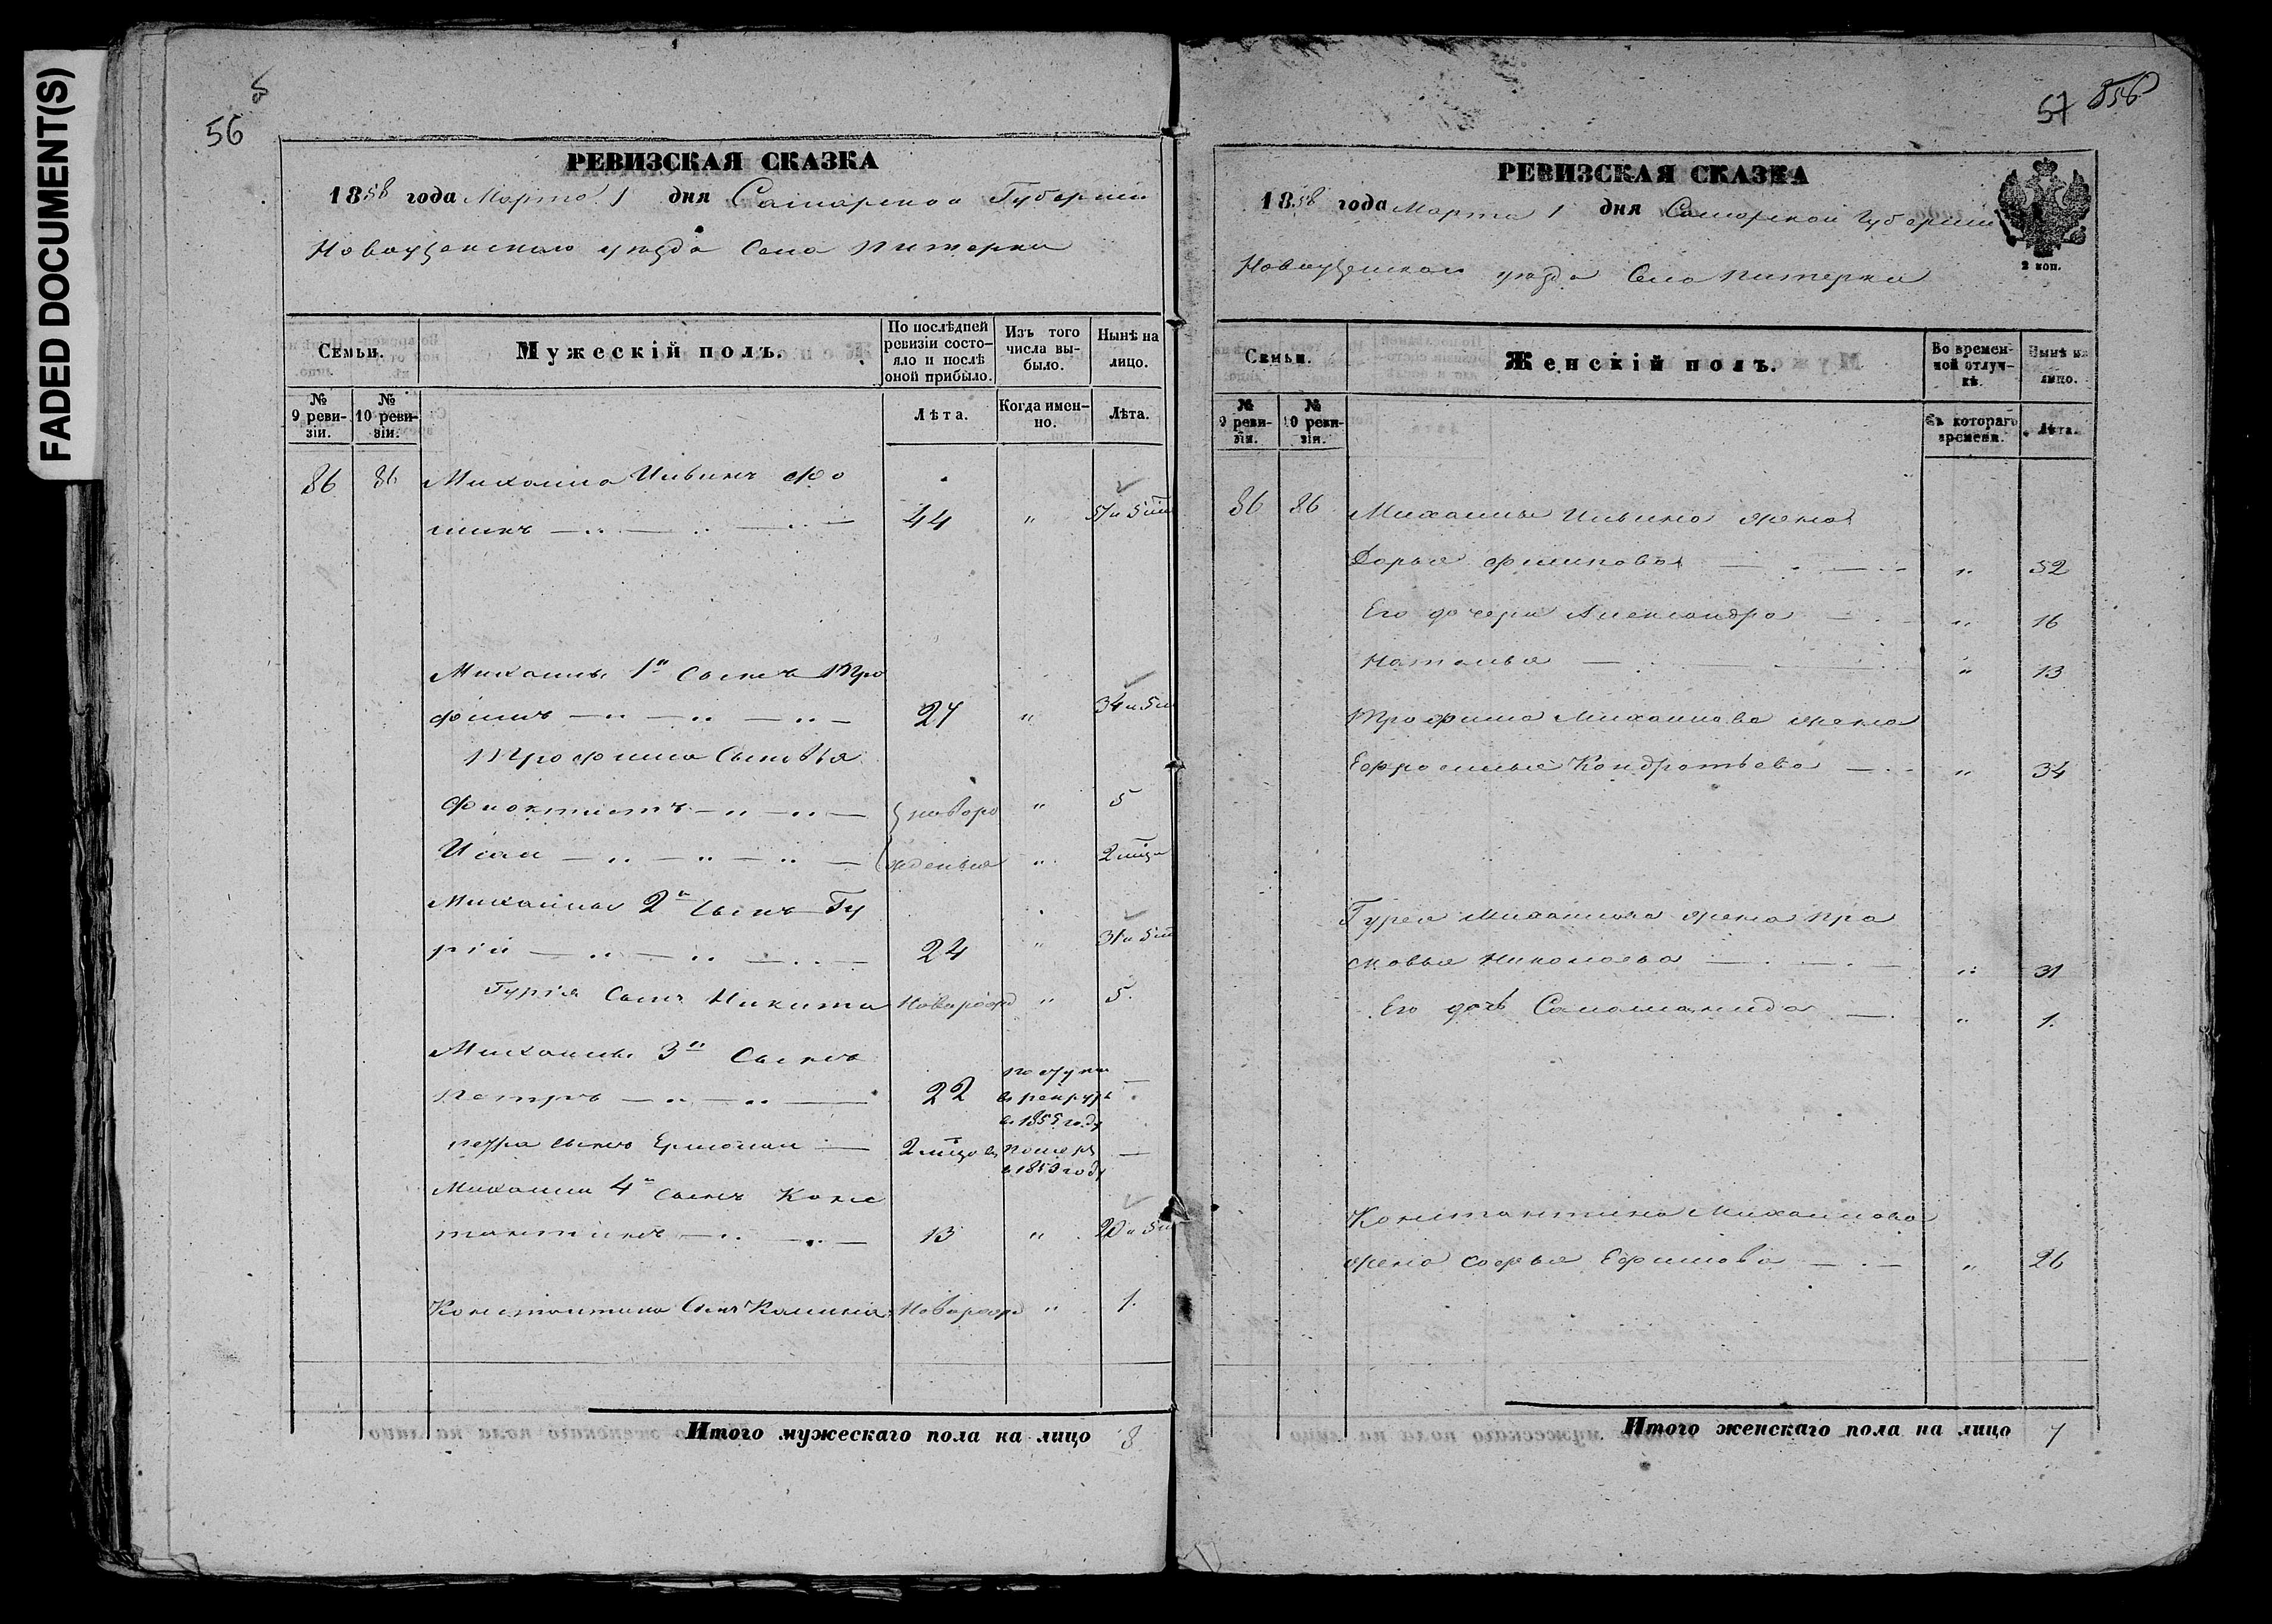 FADED DOCUMENT(S)
56
РЕВИЗСКАЯ СКАЗКА
1858 года Марта 1 дня Самарской Губернии
Новоузенского уезда Села Питерки
Семьи.
Мужескiй полъ.
По послѣдней ревизiи состояло и послѣ оной прибыло.
Изъ того числа выбыло.
Нынѣ на лицо.
№ 9 ревизiи.
№ 10 ревизiи.
Лѣта.
Когда именно.
Лѣта.
86 86 Михаила Ильинъ Фо
минъ 44 " 51 и 5
Михайлы 1й Сынъ Тро
фимъ 24 " 34 и 5
Трофима Сыновья
Фиоктистъ новоро " 5
Исаи жденныя " 2
Михайлы 2й Сынъ Гу
рiй 24 " 31 и 5
Гурiя Сынъ Никита Новорожд " 5.
Михайлы 3й Сынъ
Петръ 22
в рекруты
в 1855 году
Петра сынъ Ермолаи 2 померъ
в 1850 году
Михайлы 4й сынъ Конс
тантинъ 13 " 20 и 5
Константина Сынъ Калина Новорожд " 1.
Итого мужескаго пола на лицо 8
57 856
РЕВИЗСКАЯ СКАЗКА
1858 года Марта 1 дня Самарской Губернии
2 коп.
Новоузенского уезда Села Питерки
Семьи.
Женскiй полъ.
Во временной отлучкѣ.
Нынѣ на лицо.
№ 9 ревизiи.
№ 10 ревизiи.
Съ котораго времени.
Лѣта.
86 86 Михайлы Ильина жена
Дарья Филипова " 52
Его дочери Александра " 16
Наталья " 13
Трофима Михаилова жена
Ефросинья Кондратьева " 34
Гурея Михаилова жена Пра
сковья Николаева " 31
Его дочь Саломанида " 1.
Константина Михаилова
жена Софья Ефимова " 26
Итого женскаго пола на лицо 7